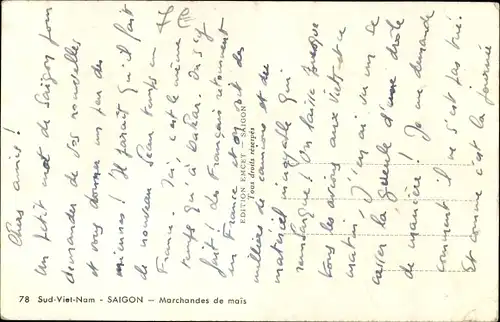 Chers amis !
Un petit mot de Saigon pour
demander de vos nouvelles
et vous donner un peu des
miennes ! Il paraît qu'il fait
de nouveau beau temps en
France. Ici, c'est le même
temps qu'à Dakar. On s'y
fait ! Les Français retournent
en France et on voit des
milliers de camions et du
matériel incroyable qui
rembarque ! On laisse presque
tous les avions aux Viets et ce
matin j'en ai vu un se
casser la gueule d'une drôle
de manière ! Je me demande
comment il ne s'est pas tué !
Et comme c'est la journée
EDITION EMCET - SAIGON
Tous droits réservés
78 Sud-Viet-Nam - SAIGON — Marchandes de maïs